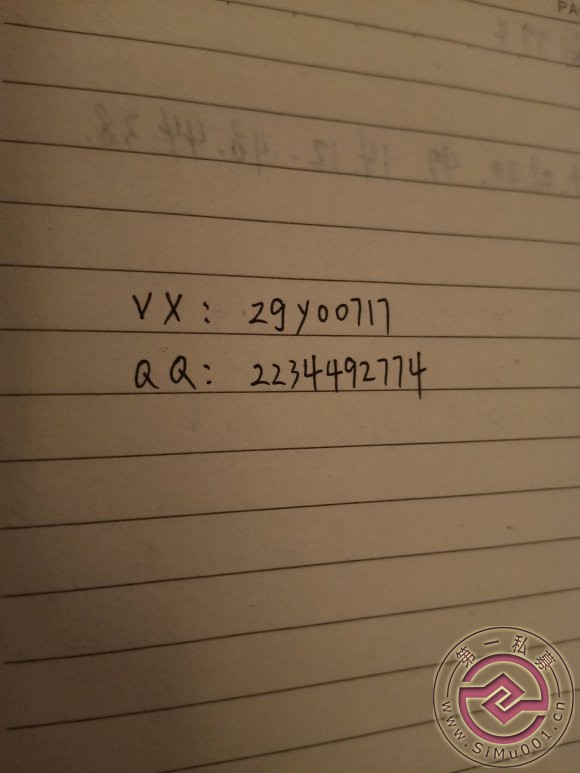 PA
VX: 29y00717
QQ: 2234492774
第一私募
www.SiMu001.cn